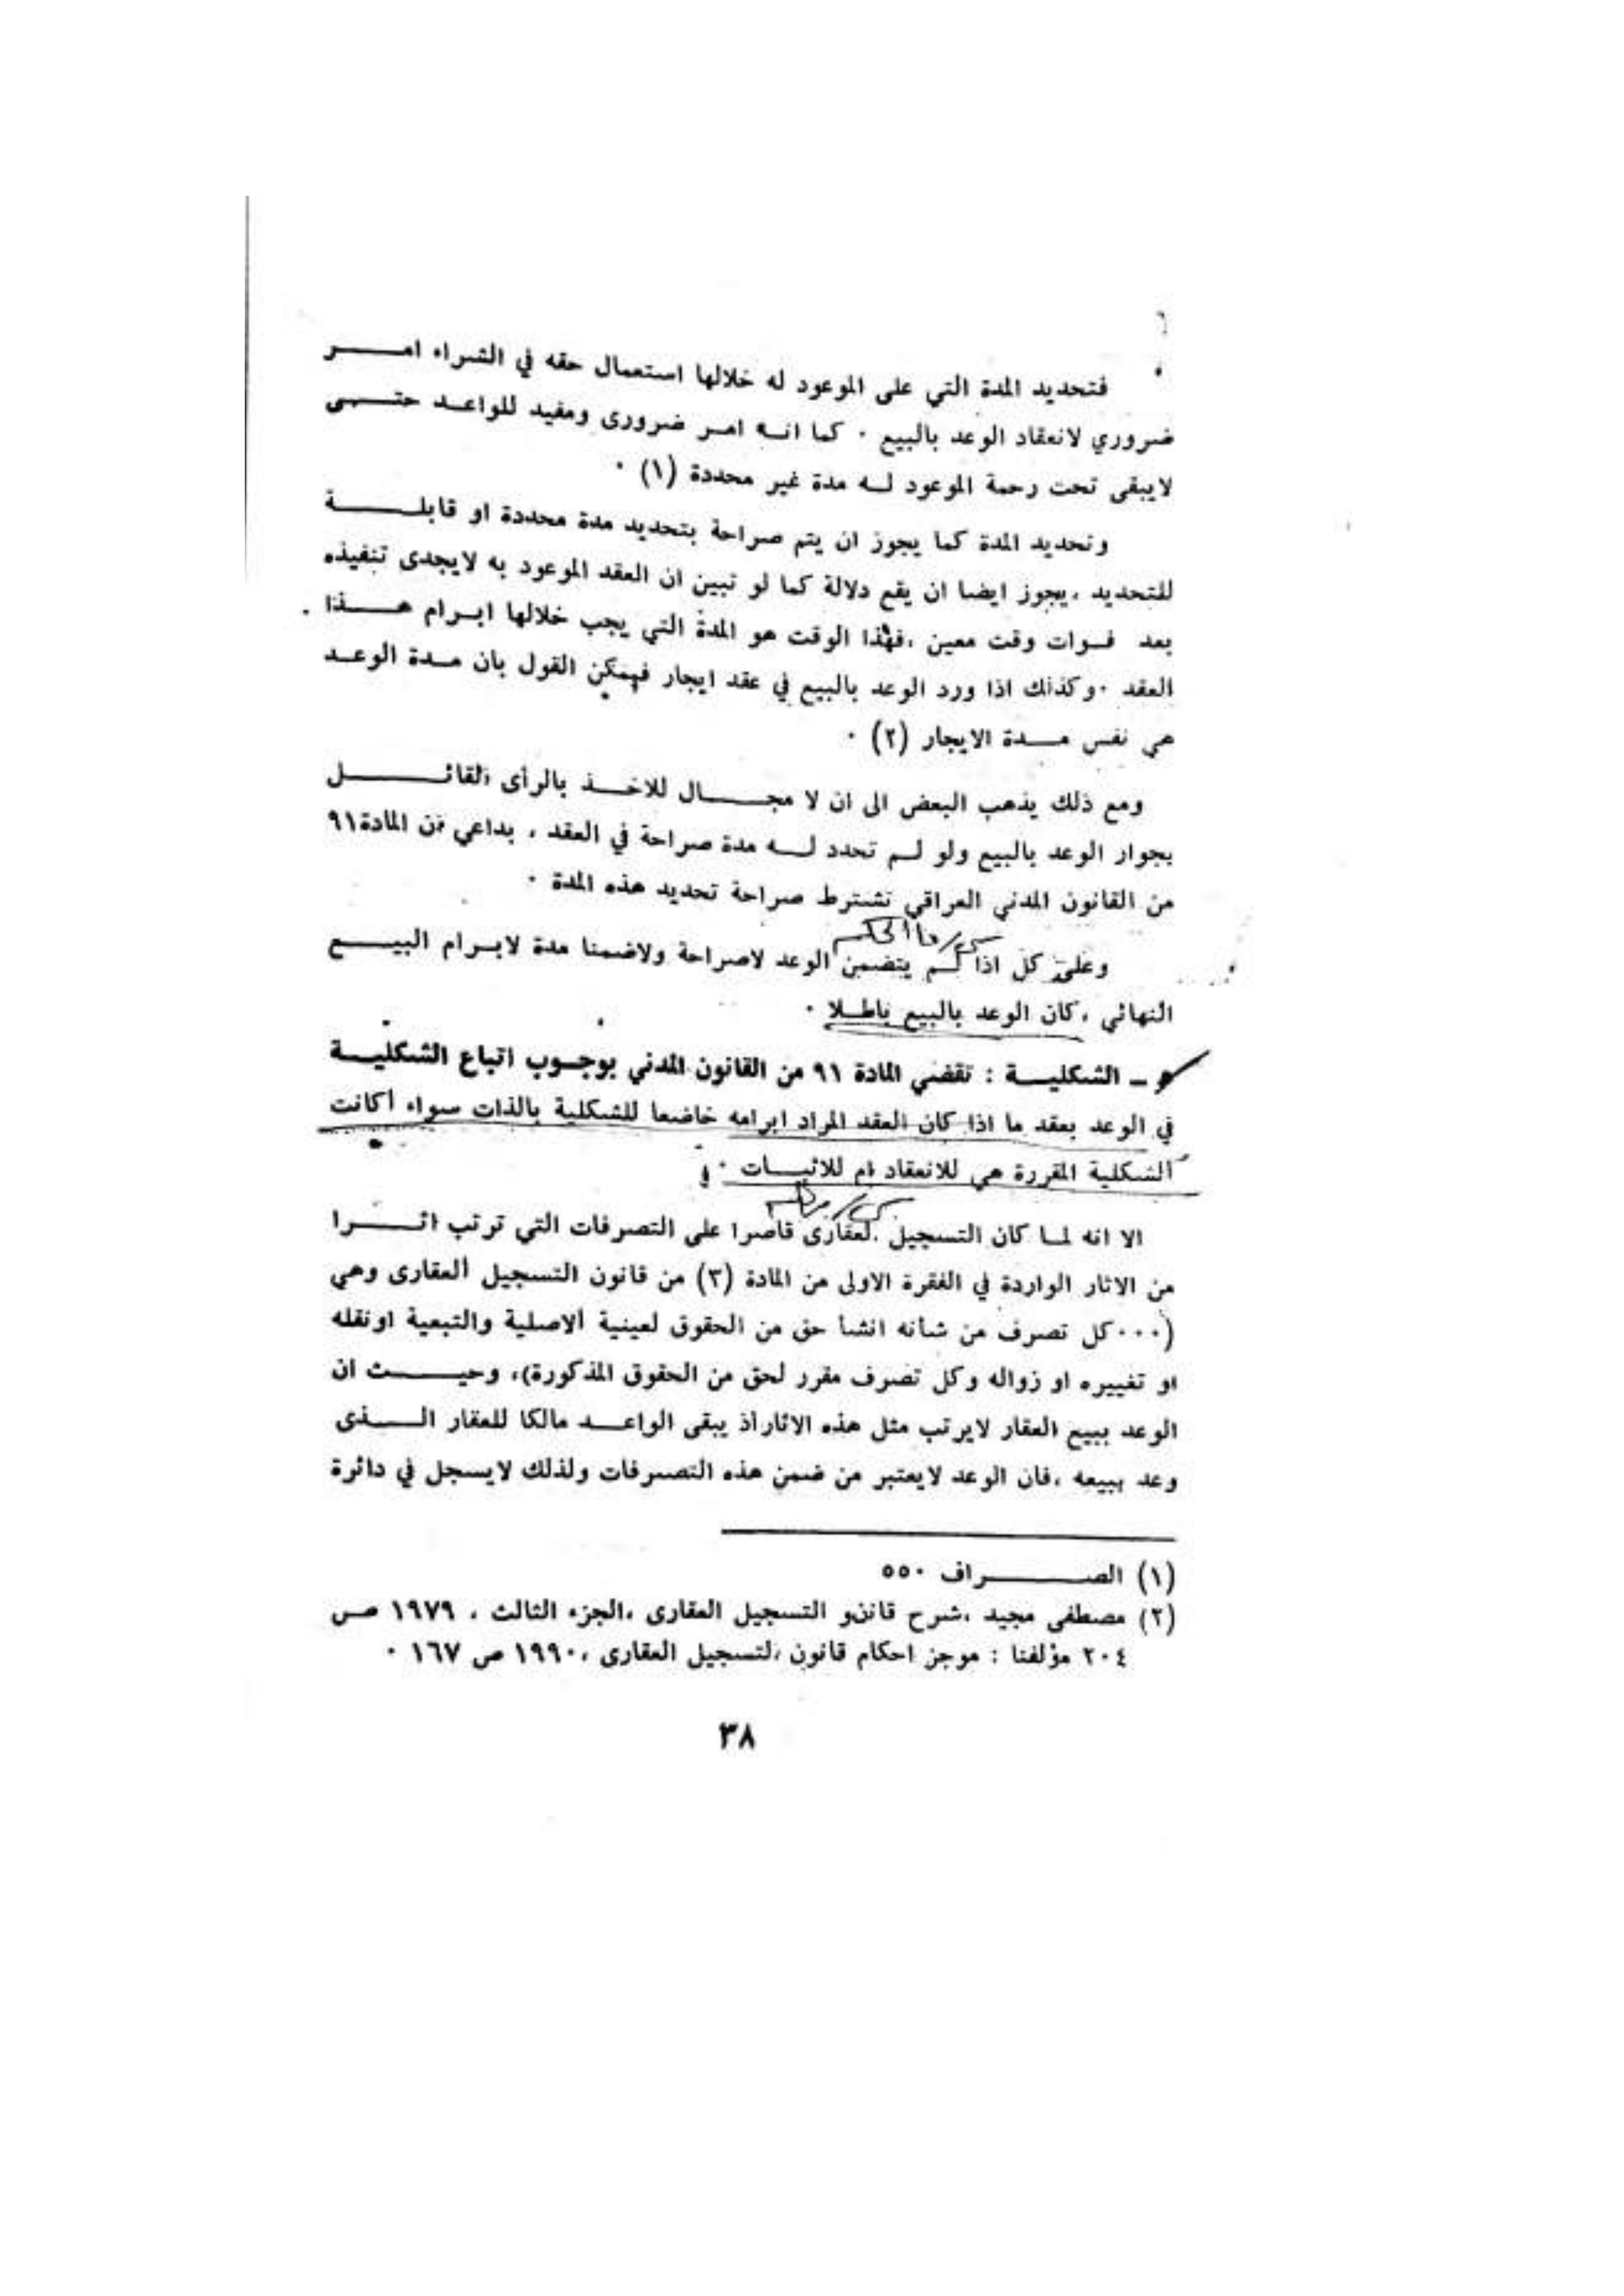 فتحديد المدة التي على الموعود له خلالها استعمال حقه في الشراء امر
ضروري لانعقاد الوعد بالبيع . كما انه امر ضرورى ومفيد للواعد حتى
لايبقى تحت رحمة الموعود له مدة غير محددة (١) .
وتحديد المدة كما يجوز ان يتم صراحة بتحديد مدة محددة او قابلة
للتحديد ، يجوز ايضا ان يقع دلالة كما لو تبين ان العقد الموعود به لايجدى تنفيذه
بعد فوات وقت معين ،فهذا الوقت هو المدة التي يجب خلالها ابرام هذا
العقد .وكذلك اذا ورد الوعد بالبيع في عقد ايجار فيمكن القول بان مدة الوعد
هي نفس مدة الايجار (٢) .
ومع ذلك يذهب البعض الى ان لا مجال للاخذ بالرأى القائل
بجوار الوعد بالبيع ولو لم تحدد له مدة صراحة في العقد ، بداعي ان المادة٩١
من القانون المدني العراقي تشترط صراحة تحديد هذه المدة .
س/ ما الحكم
وعلى كل اذا لم يتضمن الوعد لاصراحة ولاضمنا مدة لابرام البيع
النهائي ،كان الوعد بالبيع باطلا .
ـ الشكلية : تقضي المادة ٩١ من القانون المدني بوجوب اتباع الشكلية
في الوعد بعقد ما اذا كان العقد المراد ابرامه خاضعا للشكلية بالذات سواء أكانت
الشكلية المقررة هي للانعقاد ام للاثبات .
الا انه لما كان التسجيل العقارى قاصرا على التصرفات التي ترتب اثرا
من الاثار الواردة في الفقرة الاولى من المادة (٣) من قانون التسجيل العقارى وهي
(...كل تصرف من شأنه انشأ حق من الحقوق لعينية ألاصلية والتبعية اونقله
او تغييره او زواله وكل تصرف مقرر لحق من الحقوق المذكورة)، وحيث ان
الوعد ببيع العقار لايرتب مثل هذه الاثارأذ يبقى الواعد مالكا للعقار الذى
وعد ببيعه ،فان الوعد لايعتبر من ضمن هذه التصرفات ولذلك لايسجل في دائرة
(١) الصراف ٥٥٠
(٢) مصطفى مجيد ،شرح قاننو التسجيل العقارى ،الجزء الثالث ، ١٩٧٩ ص
٢٠٤ مؤلفنا : موجز احكام قانون التسجيل العقارى ،١٩٩٠ ص ١٦٧ .
٣٨